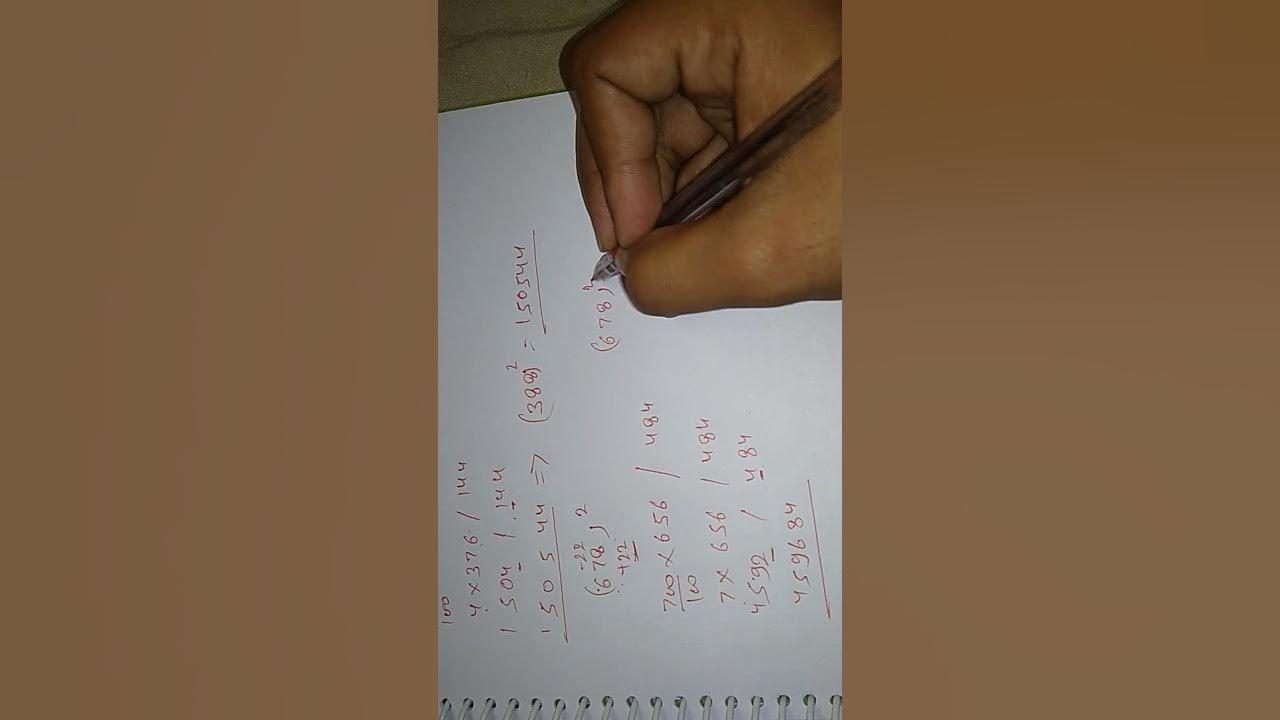 100
4 × 376 / 144
1504 / 144
150544 => (388)² = 150544
-22
(678)²
+22
(678)²
700 × 656 / 484
100
7 × 656 / 484
4592 / 484
459684